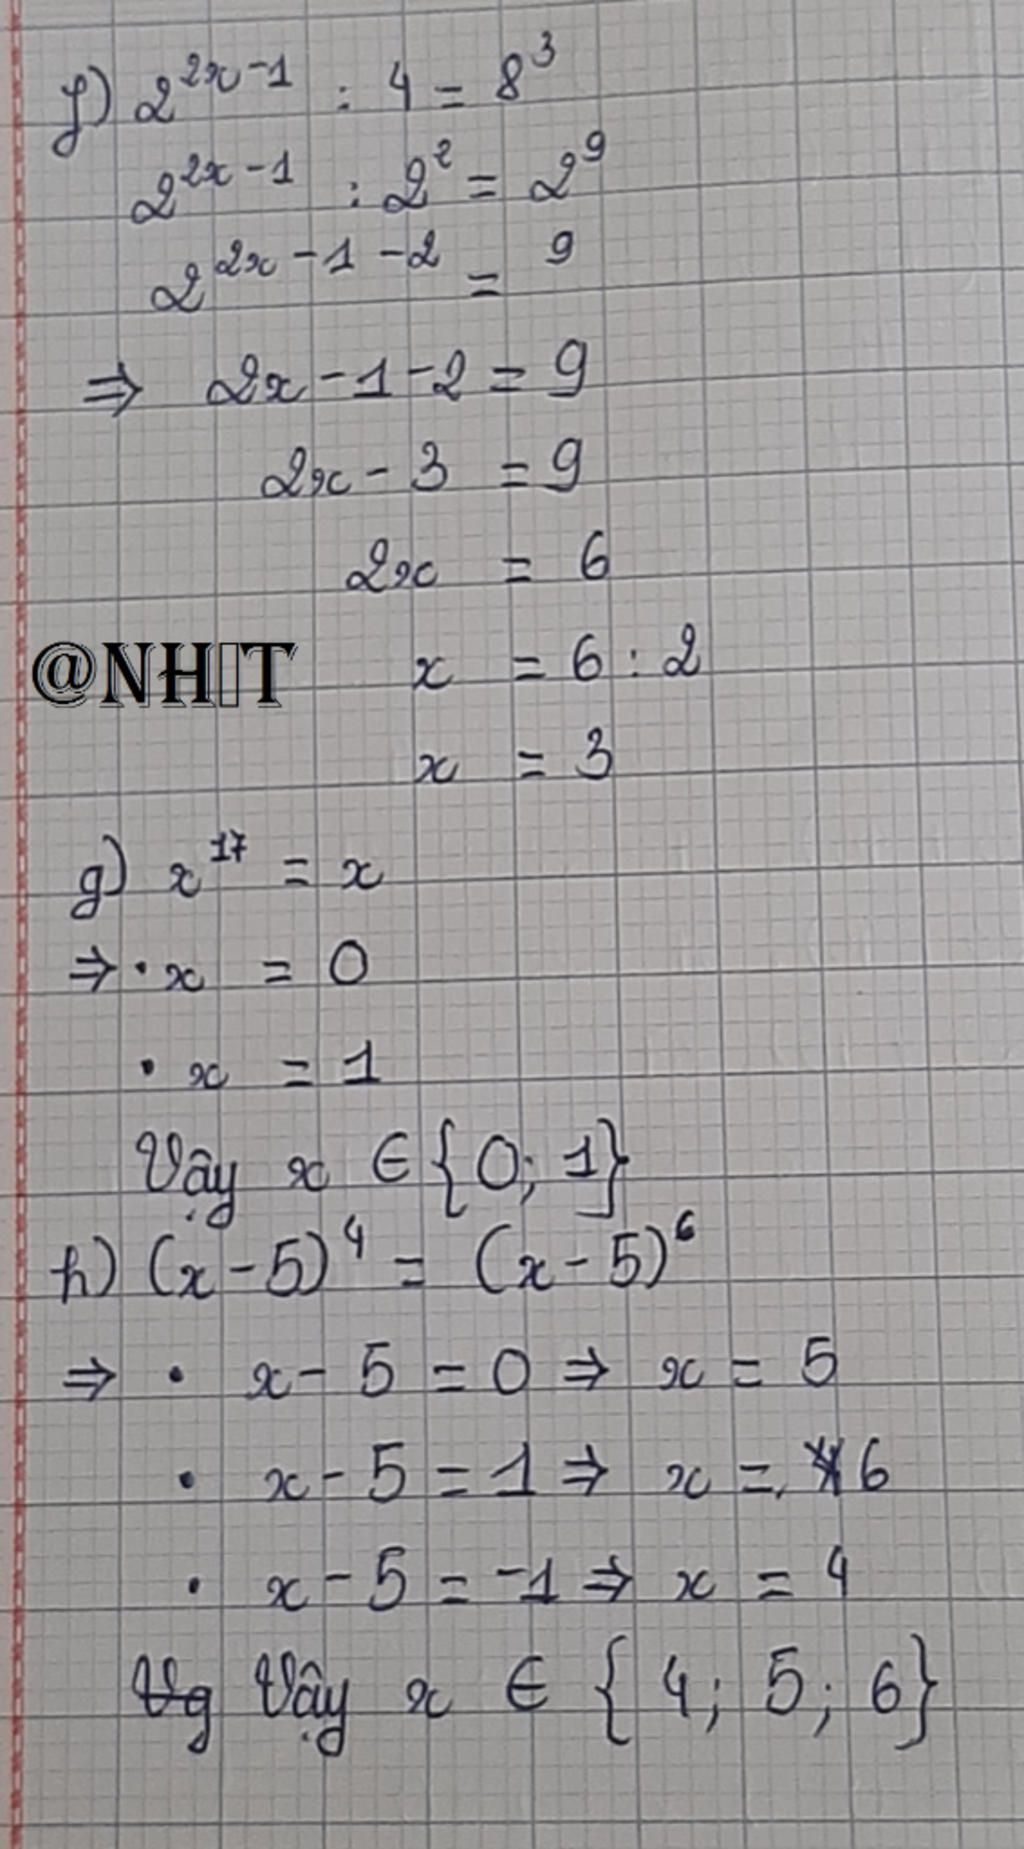 f) 2^{2x-1} : 4 = 8^3
2^{2x-1} : 2^2 = 2^9
2^{2x-1-2} = ^9
⇒ 2x - 1 - 2 = 9
2x - 3 = 9
2x = 6
@NH▯T
x = 6 : 2
x = 3
g) x^{17} = x
⇒ · x = 0
· x = 1
Vậy x ∈ {0; 1}
h) (x - 5)^4 = (x - 5)^6
⇒ · x - 5 = 0 ⇒ x = 5
· x - 5 = 1 ⇒ x = 6
· x - 5 = -1 ⇒ x = 4
Vậy x ∈ {4; 5; 6}